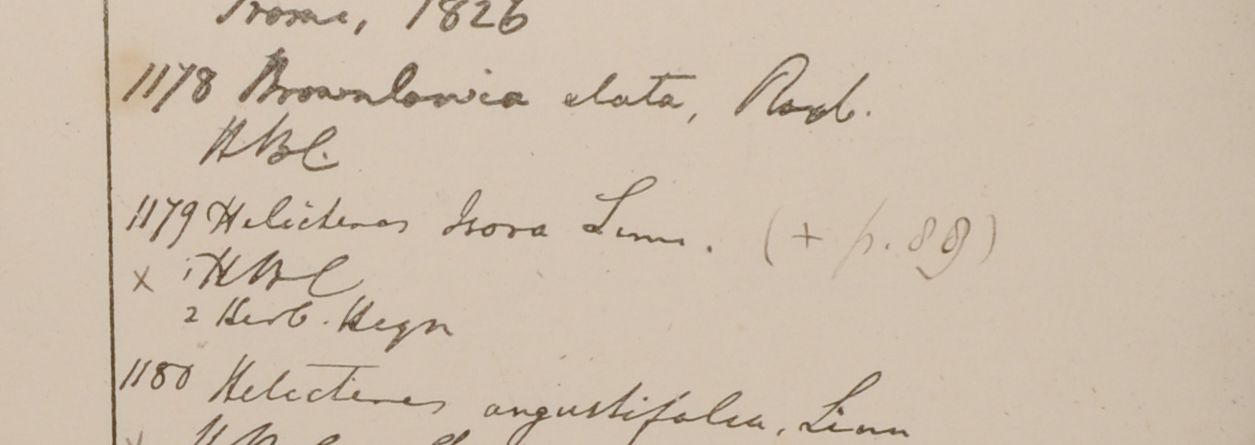 Prome, 1826
1178 Brownlowia elata, Roxb.
HBC.
1179 Helicteres Isora Linn. (+ p. 89)
x 1 HBC
2 Herb. Heyn
1180 Helicteres angustifolia, Linn